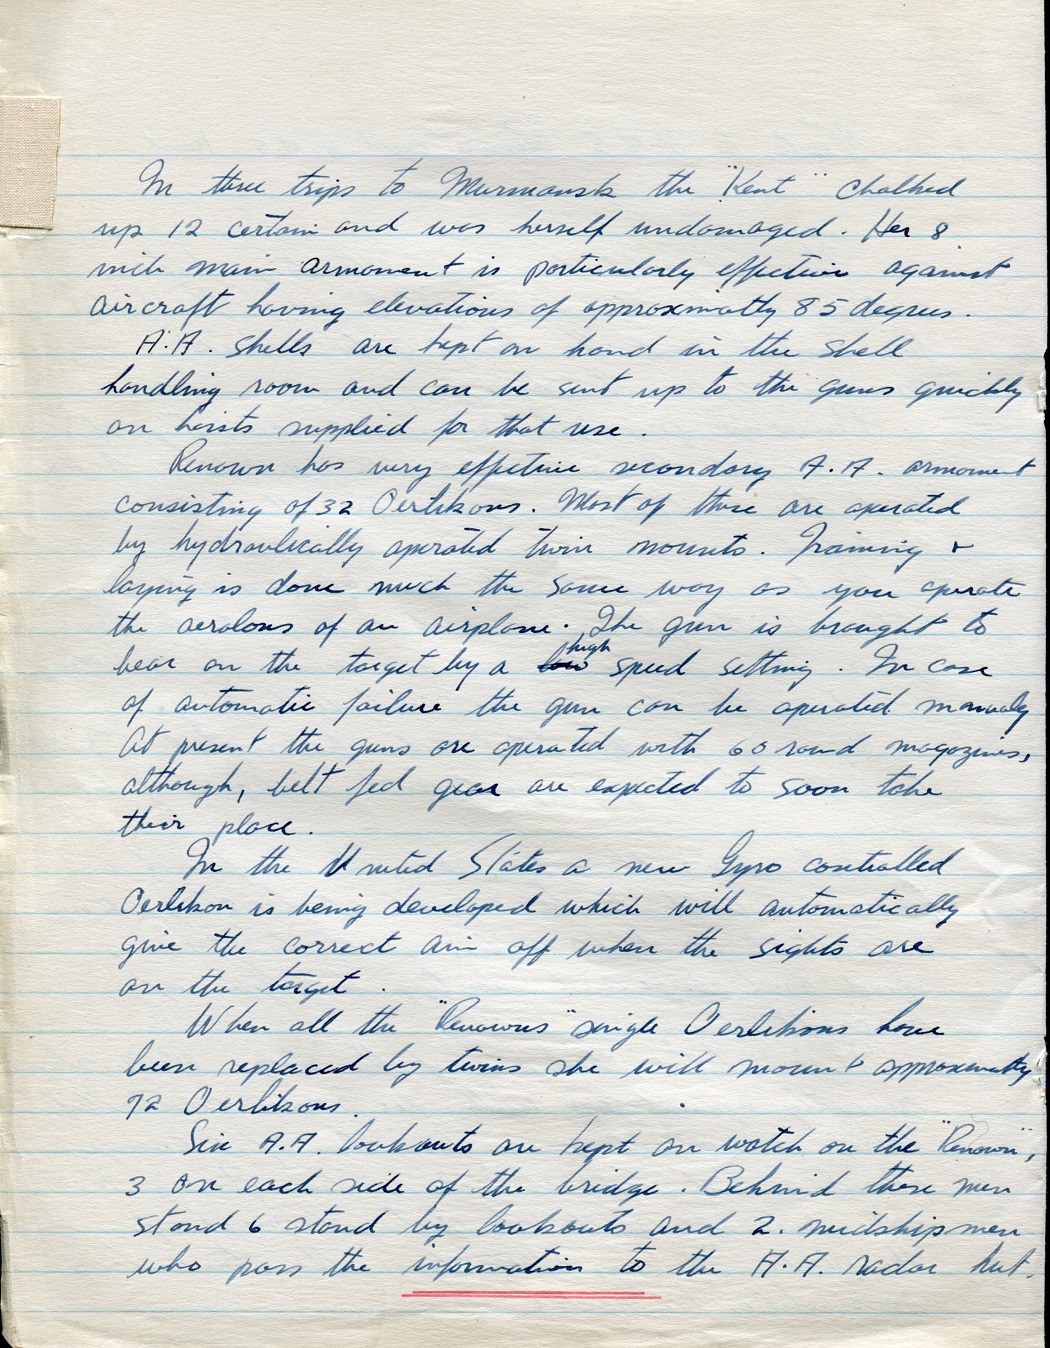 In three trips to Murmansk the "Kent" chalked
up 12 certain and was herself undamaged. Her 8
inch main armament is particularly effective against
aircraft having elevations of approximatly 85 degrees.
A.A. shells are kept on hand in the shell
handling room and can be sent up to the guns quickly
on hoists supplied for that use.
Renown has very effective secondary A.A. armament
consisting of 32 Oerlikons. Most of these are operated
by hydraulically operated twin mounts. Training +
laying is done much the same way as you operate
the aeralons of an airplane. The gun is brought to
bear on the target by a low high speed setting. In case
of automatic failure the gun can be operated manualy
At present the guns are operated with 60 round magazines,
although, belt fed gear are expected to soon take
their place.
In the United States a new Gyro controlled
Oerlikon is being developed which will automatically
give the correct aim off when the sights are
on the target.
When all the "Renowns" single Oerlikons have
been replaced by twins she will mount approximatly
72 Oerlikons.
Six A.A. lookouts are kept on watch on the "Renown",
3 on each side of the bridge. Behind these men
stand 6 stand by lookouts and 2. midshipmen
who pass the information to the A.A. radar hut.